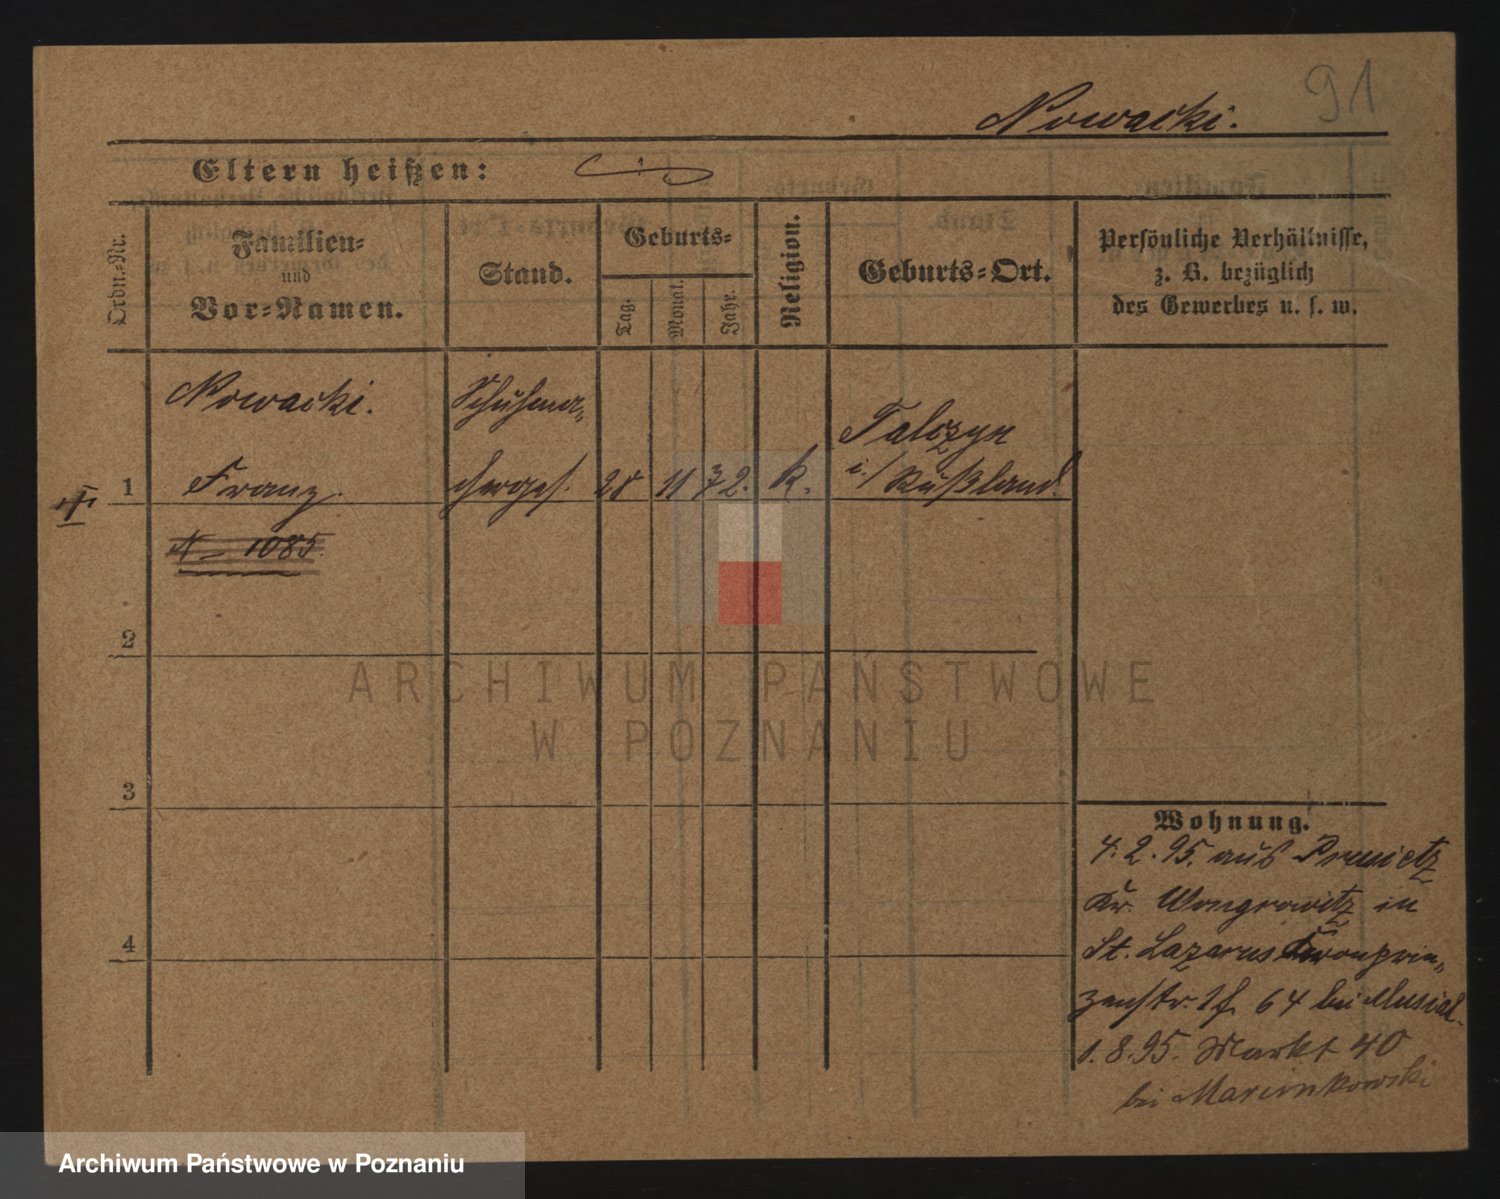 91
Nowacki.
Eltern heißen:
Ordn.-Nr.
Familien-
und
Vor-Namen.
Stand.
Geburts-
Tag.
Monat.
Jahr.
Religion.
Geburts-Ort.
Persönliche Verhältnisse,
z. B. bezüglich
des Gewerbes u. s. w.
Nowacki.
Schuhma-
Talczyn
1 Franz. chergef. 28 11 72. k. i./Rußland.
N 1085
2
3
4
Wohnung.
4.2.95. aus
Kr. Wongrowitz in
St. Lazarus Kronprin-
zenstr. 64 bei Musial.
1.8.95. Markt 40
bei Marcinkowski
ARCHIWUM PAŃSTWOWE
W POZNANIU
Archiwum Państwowe w Poznaniu